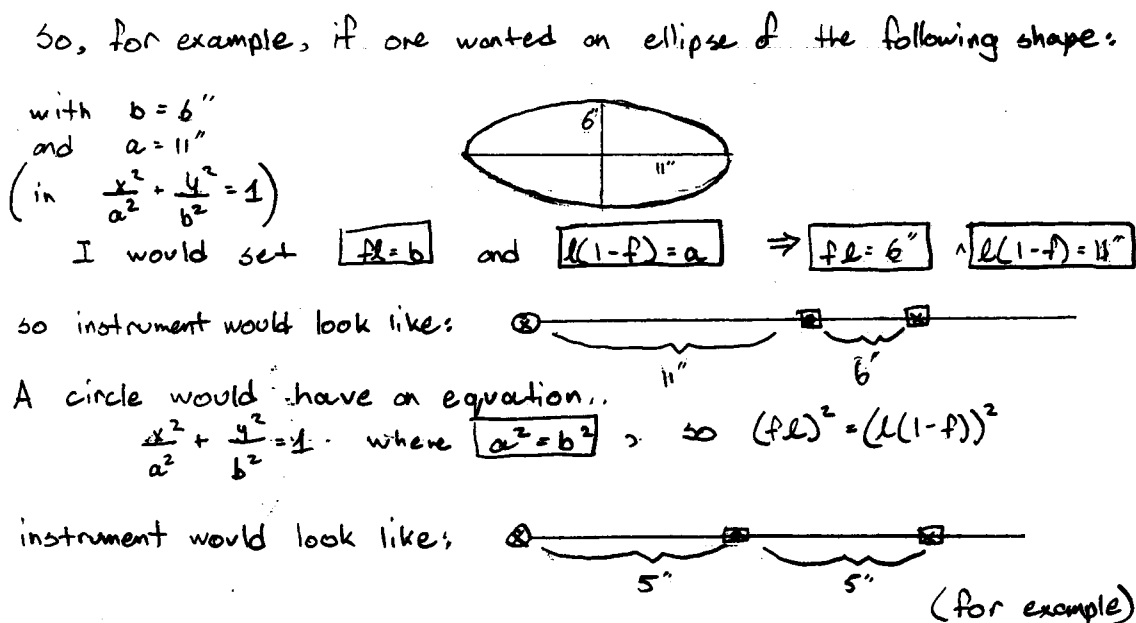 so, for example, if one wanted an ellipse of the following shape:
with b = 6"
and a = 11"
(in x²/a² + y²/b² = 1)
6"
11"
I would set fl = b and l(1-f) = a ⇒ fl = 6" ∧ l(1-f) = 11"
so instrument would look like:
11"
6"
A circle would have an equation..
x²/a² + y²/b² = 1 . where a² = b² , so (fl)² = (l(1-f))²
instrument would look like:
5"
5"
(for example)